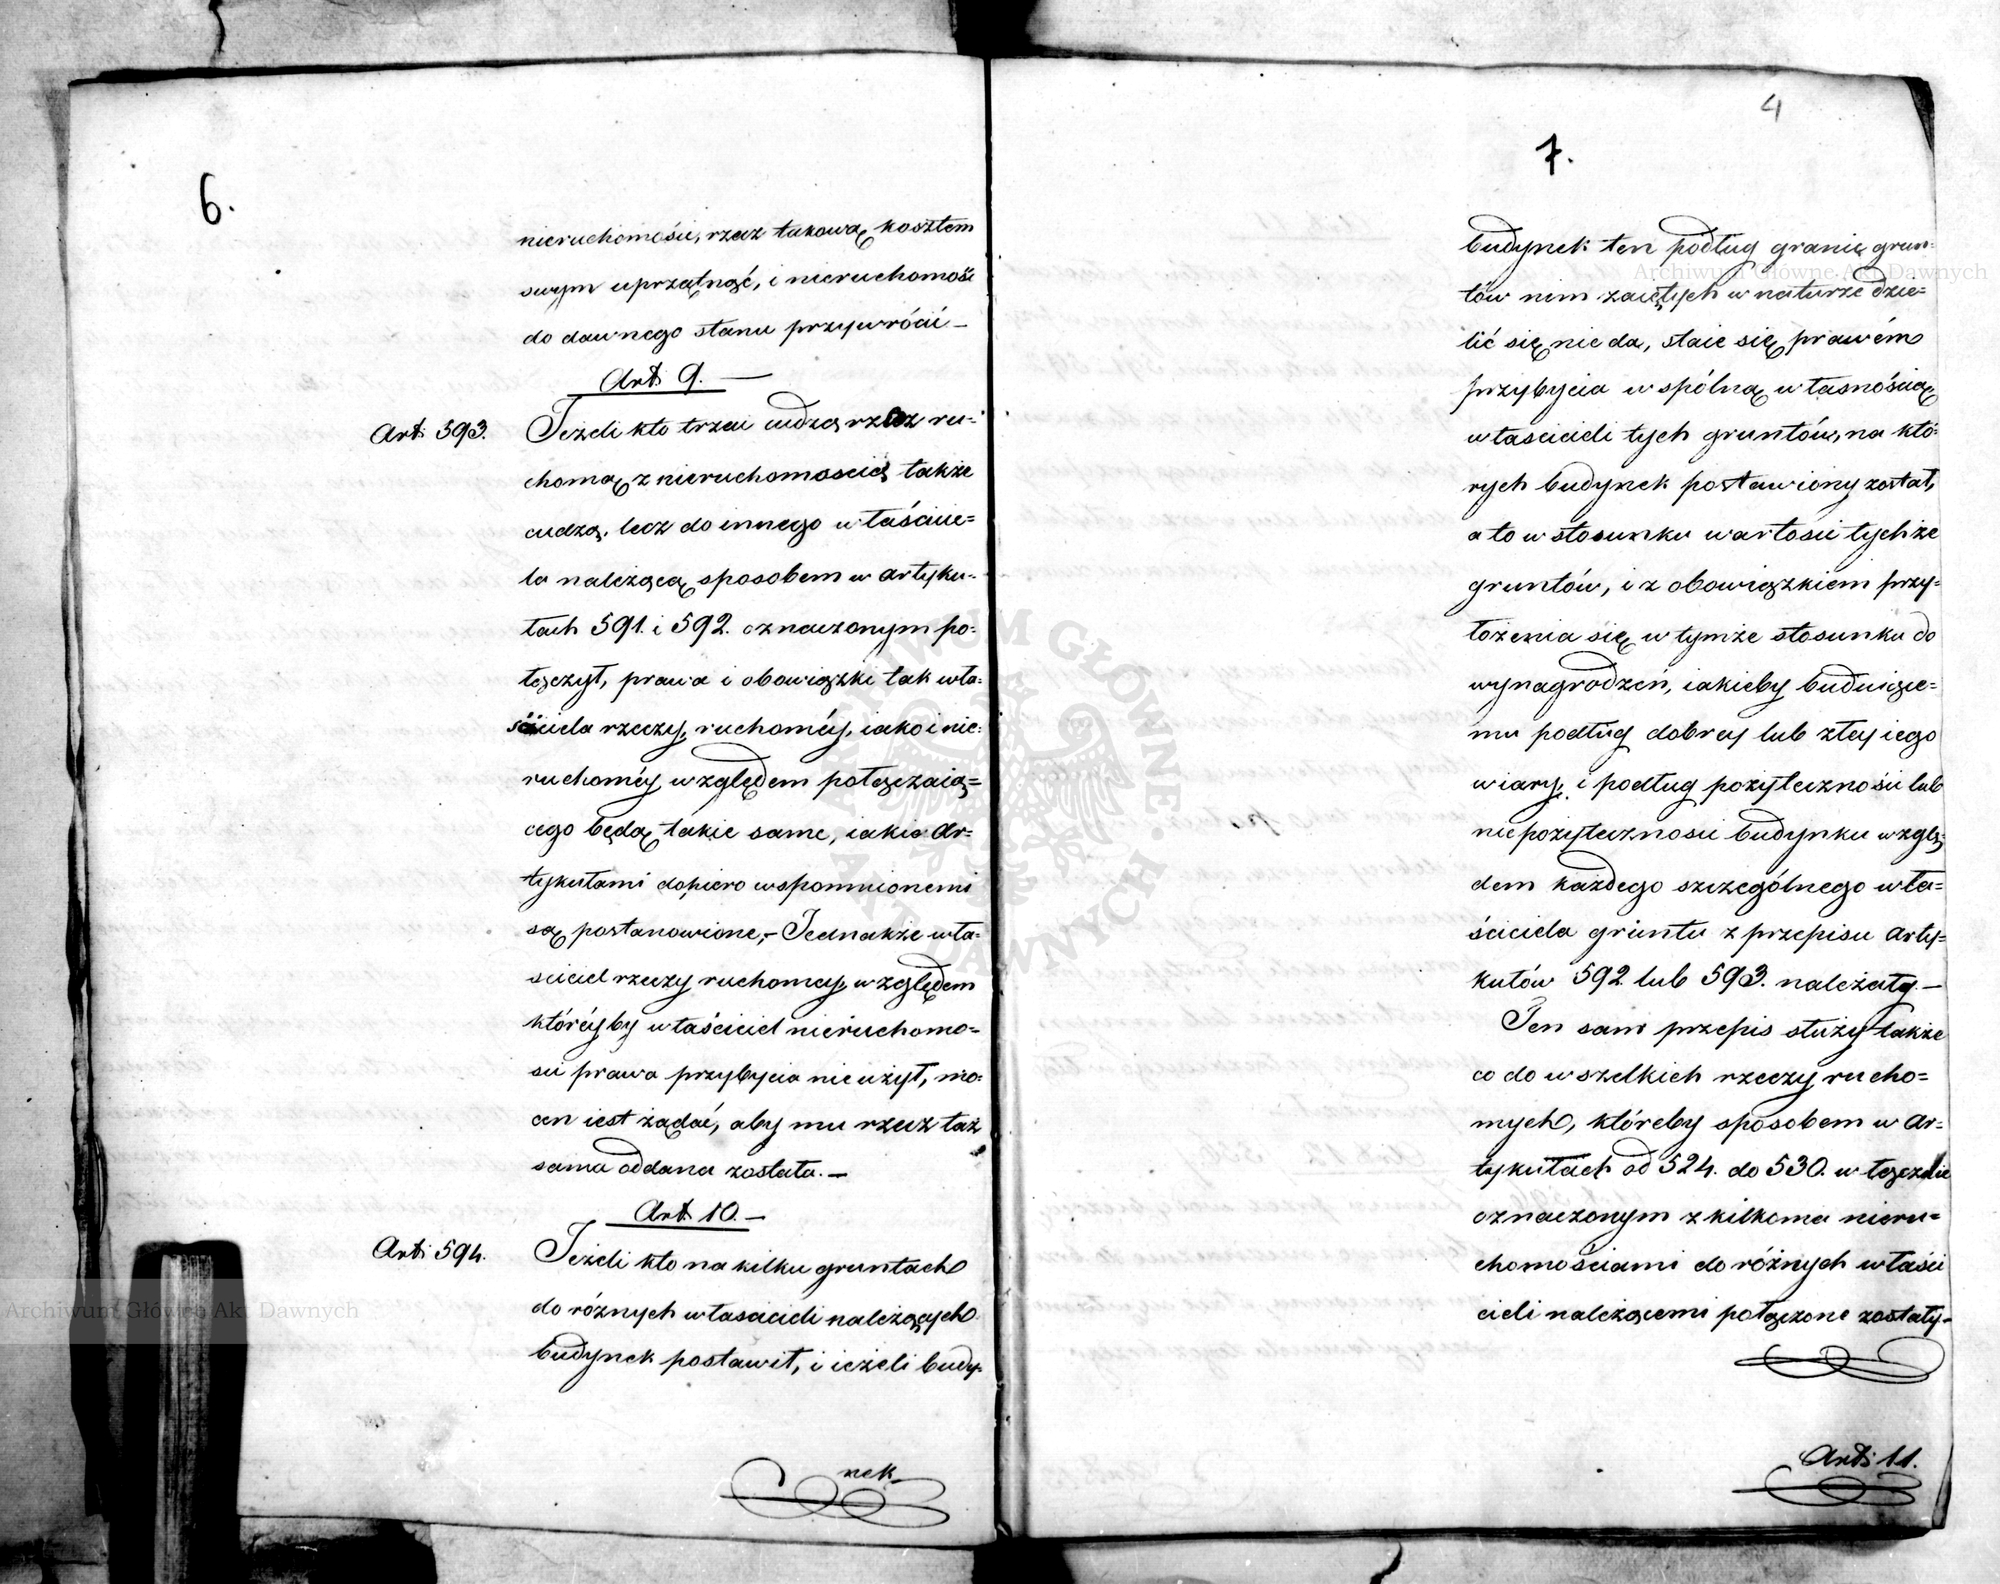 6.
nieruchomości, rzecz takową kosztem
swym uprzątnąć, i nieruchomość
do dawnego stanu przywrócić –
Art: 9. –
Art: 593.
Jeżeli kto trzeci cudzą rzecz ru-
chomą z nieruchomością także
cudzą, lecz do innego właścicie=
la należącą sposobem w artyku-
łach 591. i 592. oznaczonym po-
łączył, prawa i obowiązki tak wła-
ściciela rzeczy ruchoméy, iako i nie-
ruchoméy względem połączaią=
cego będą takie same, iakie Ar=
tykułami dopiero wspomnionemi
są postanowione, – Jednakże wła-
ściciel rzeczy ruchoméy, względem
któréyby właściciel nieruchomo=
ści prawa przybycia nie użył, mo-
cen iest żądać, aby mu rzecz taż
sama oddana została. –
Art 10. –
Art: 594.
Jeżeli kto na kilku gruntach
do różnych właścicieli należących
budynek postawił, i ieżeli budy-
nek
4
7.
budynek ten podług granic grun-
tów nim zaiętych w naturze dzie=
lić się nie da, staie się prawem
przybycia wspólną własnością
właścicieli tych gruntów, na któ-
rych budynek postawiony został,
a to w stosunku wartości tychże
gruntów, i z obowiązkiem przy=
łożenia się w tymże stosunku do
wynagrodzeń, iakieby buduiące=
mu podług dobrey lub złey iego
wiary, i podług pożyteczności lub
niepożyteczności budynku wzglę-
dem każdego szczególnego wła=
ściciela gruntu z przepisu Arty=
kułów 592 lub 593. należały. –
Ten sam przepis służy także
co do wszelkich rzeczy rucho=
mych, któreby sposobem w Ar=
tykułach od 524. do 530. włącznie
oznaczonym z kilkoma nieru=
chomościami do różnych właści
cieli należącemi połączone zostały –
Art: 11.
Archiwum Główne Akt Dawnych
Archiwum Główne Akt Dawnych
ARCHIWUM GŁÓWNE AKT DAWNYCH